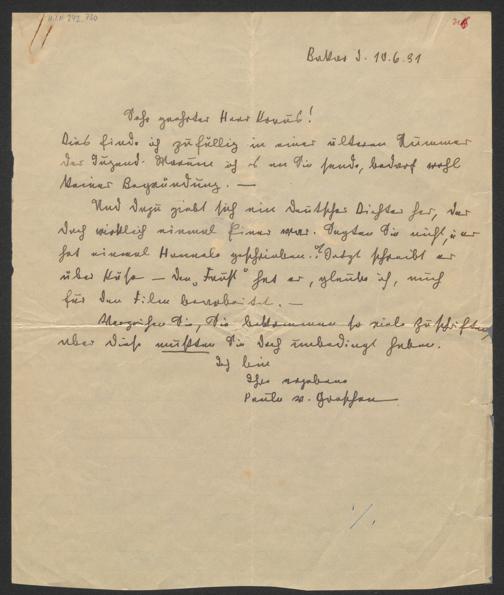 H.I.N. 242.720
Baden b. 10.6.31
Sehr geehrter Herr Kraus!
Dies finde ich zufällig in einer älteren Nummer
der Jugend. Warum ich es an Sie sende, bedarf wohl
keiner Begründung. —
Und dazu giebt sich ein deutscher Dichter her, der
doch wirklich einmal Einer war. Sagten Sie nicht, er
hat einmal Hannele geschrieben? Jetzt schreibt er
über Küsse — den „Faust" hat er, glaube ich, auch
für den Film bearbeitet. —
Verzeihen Sie, Sie bekommen so viele Zuschriften,
aber diese mußten Sie doch unbedingt haben.
Ich bin
Ihre ergebene
Paula v.